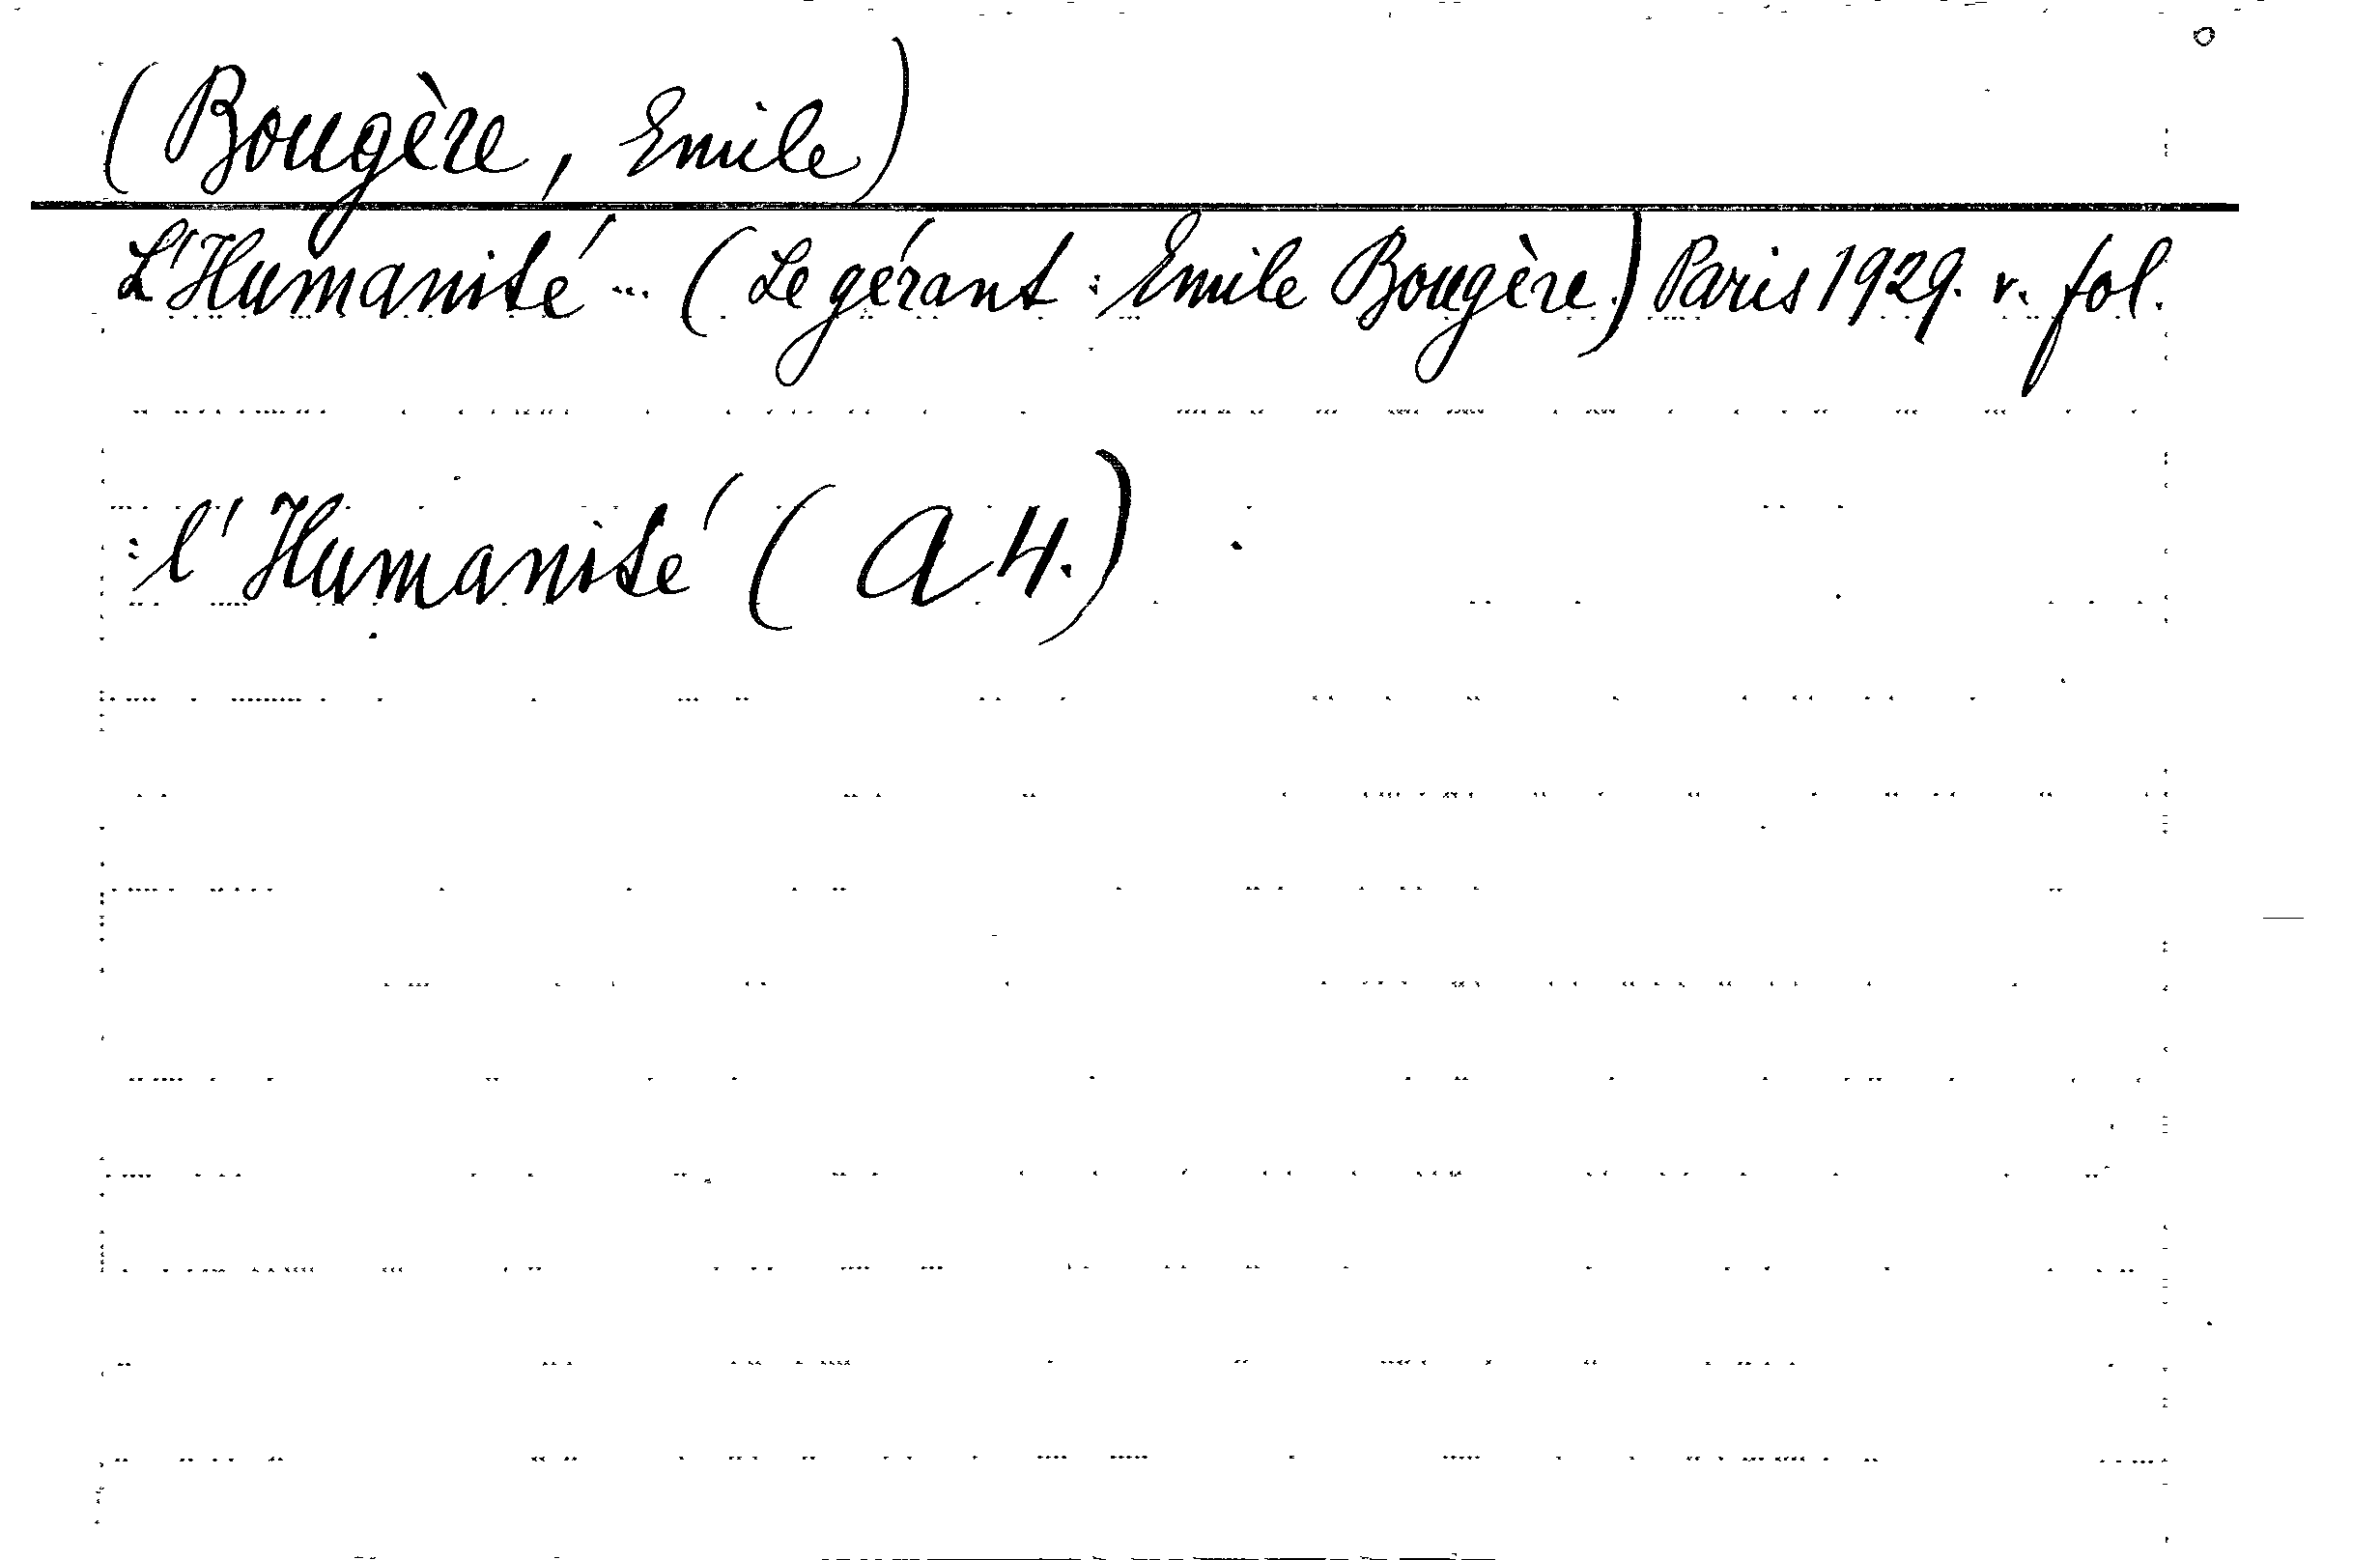 (Bougère, Emile)
L'Humanité ... (Le gérant : Emile Bougère.) Paris 1929. v. fol.
: l'Humanité (A 4.)